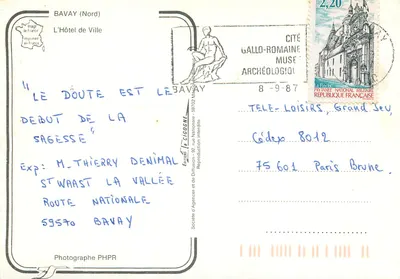 BAVAY (Nord)
L'Hôtel de Ville
"LE DOUTE EST LE
DEBUT DE LA
SAGESSE"
EXP: M. THIERRY DENIMAL
ST WAAST LA VALLÉE
ROUTE NATIONALE
59570 BAVAY
Photographe PHPR
Reproduction interdite
BAVAY
CITÉ
GALLO-ROMAINE
MUSÉ
ARCHÉOLOGIQU
8-9-87
2,20
RÉPUBLIQUE FRANÇAISE
TELE-LOISIRS, Grand Jeu,
Cédex 8012
75601 Paris Brune.